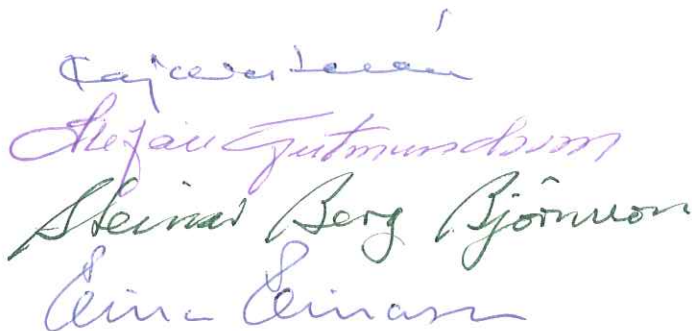 Stefán Guðmundsson
Steinar Berg Björnsson
Einar Einarsson